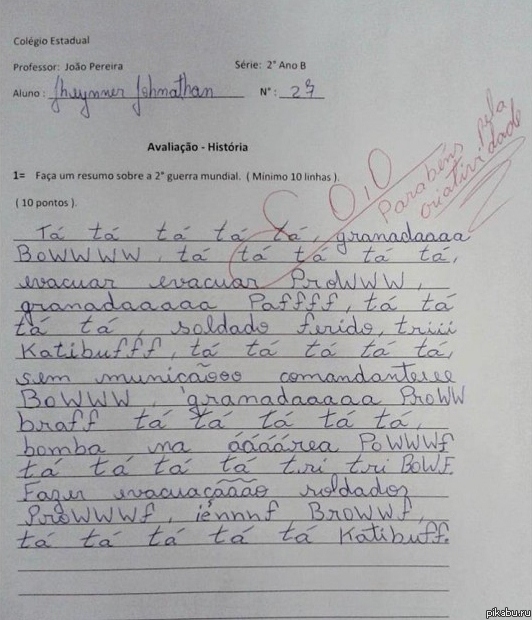 Colégio Estadual
Professor: João Pereira Série: 2° Ano B
Aluno: Jheymner Johmathan N°: 27
Avaliação - História
0,0
Parabéns pela
criatividade
1= Faça um resumo sobre a 2° guerra mundial. ( Minimo 10 linhas ).
( 10 pontos ).
Tá tá tá tá tá, granadaaaa
BOWWWW, tá tá tá tá tá,
evacuar evacuar PROWWW,
granadaaaaaa Paffff, tá tá
tá tá, soldado ferido, triii
Katibufff, tá tá tá tá tá,
sem muniçãooo comandanteeee
BOWWW, granadaaaaa PROWW
braff tá tá tá tá tá,
bomba na áááárea POWWWf
tá tá tá tá tri tri BOWF.
Fazer evacuaçãããão soldados
PROWWWf, iénnnf BROWWf,
tá tá tá tá tá Katibuff.
pikabu.ru